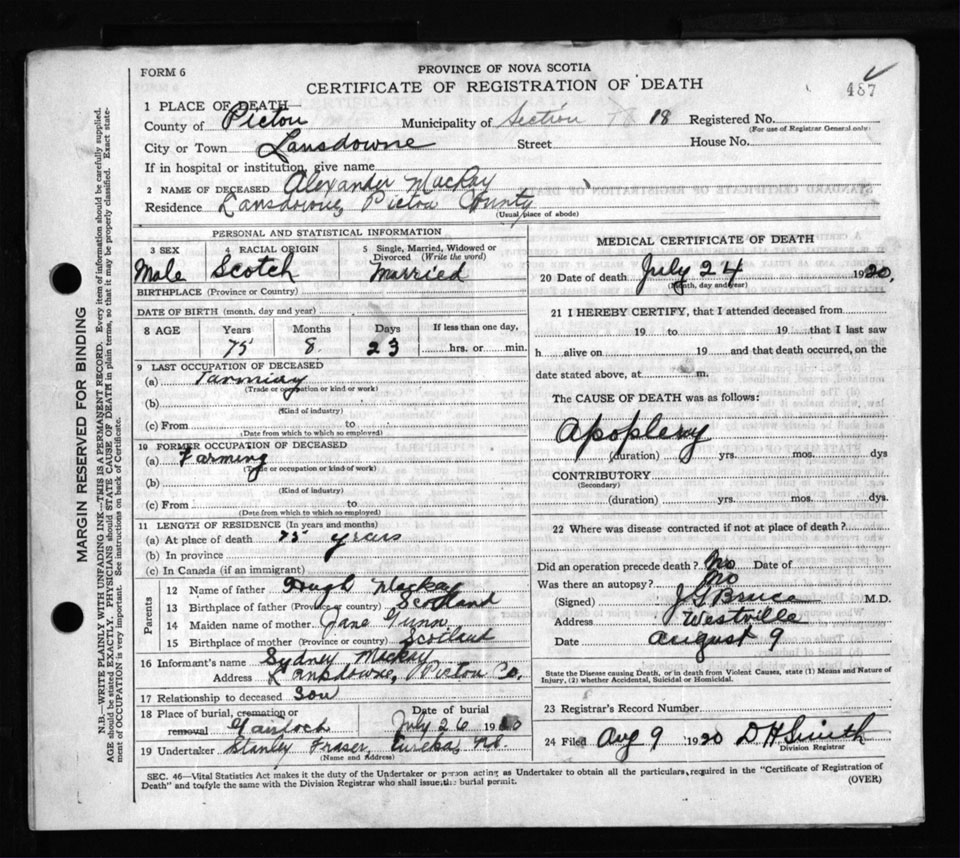 FORM 6
PROVINCE OF NOVA SCOTIA
CERTIFICATE OF REGISTRATION OF DEATH
487
1 PLACE OF DEATH—
County of Pictou Municipality of Section 18 Registered No.
(For use of Registrar General only)
City or Town Lansdowne Street House No.
If in hospital or institution, give name
2 NAME OF DECEASED Alexander MacKay
Residence Lansdowne, Pictou County
(Usual place of abode)
PERSONAL AND STATISTICAL INFORMATION
3 SEX 4 RACIAL ORIGIN 5 Single, Married, Widowed or Divorced (Write the word)
Male Scotch Married
BIRTHPLACE (Province or Country)
DATE OF BIRTH (month, day and year)
8 AGE Years Months Days If less than one day,
75 8 23 hrs. or min.
9 LAST OCCUPATION OF DECEASED
(a) Farming
(Trade or occupation or kind or work)
(b)
(Kind of industry)
(c) From to
(Date from which to which so employed)
10 FORMER OCCUPATION OF DECEASED
(a) Farming
(Trade or occupation or kind of work)
(b)
(Kind of industry)
(c) From to
(Date from which to which so employed)
11 LENGTH OF RESIDENCE (In years and months)
(a) At place of death 75 years
(b) In province
(c) In Canada (if an immigrant)
Parents
12 Name of father Hugh Mackay
13 Birthplace of father (Province or country) Scotland
14 Maiden name of mother Jane Gunn
15 Birthplace of mother (Province or country) Scotland
16 Informant's name Sydney Mackay
Address Lansdowne, Pictou Co.
17 Relationship to deceased Son
18 Place of burial, cremation or removal Gairloch Date of burial July 26 1920
19 Undertaker Stanley Fraser, Eureka, N.S.
(Name and Address)
MEDICAL CERTIFICATE OF DEATH
20 Date of death July 24 1920.
(Month, day and year)
21 I HEREBY CERTIFY, that I attended deceased from
19 to 19 that I last saw
h alive on 19 and that death occurred, on the
date stated above, at m.
The CAUSE OF DEATH was as follows:
Apoplexy
(duration) yrs. mos. dys
CONTRIBUTORY
(Secondary)
(duration) yrs. mos. dys.
22 Where was disease contracted if not at place of death?
Did an operation precede death? No Date of
Was there an autopsy? No
(Signed) J G Bruce M.D.
Address Westville
Date August 9
State the Disease causing Death, or in death from Violent Causes, state (1) Means and Nature of
Injury, (2) whether Accidental, Suicidal or Homicidal.
23 Registrar's Record Number
24 Filed Aug 9 1920 D H Smith
Division Registrar
SEC. 46—Vital Statistics Act makes it the duty of the Undertaker or person acting as Undertaker to obtain all the particulars required in the "Certificate of Registration of
Death" and to file the same with the Division Registrar who shall issue the burial permit.
(OVER)
MARGIN RESERVED FOR BINDING
N.B.—WRITE PLAINLY WITH UNFADING INK—THIS IS A PERMANENT RECORD. Every item of information should be carefully supplied.
AGE should be stated EXACTLY. PHYSICIANS should STATE CAUSE OF DEATH in plain terms, so that it may be properly classified. Exact state-
ment of OCCUPATION is very important. See instructions on back of Certificate.